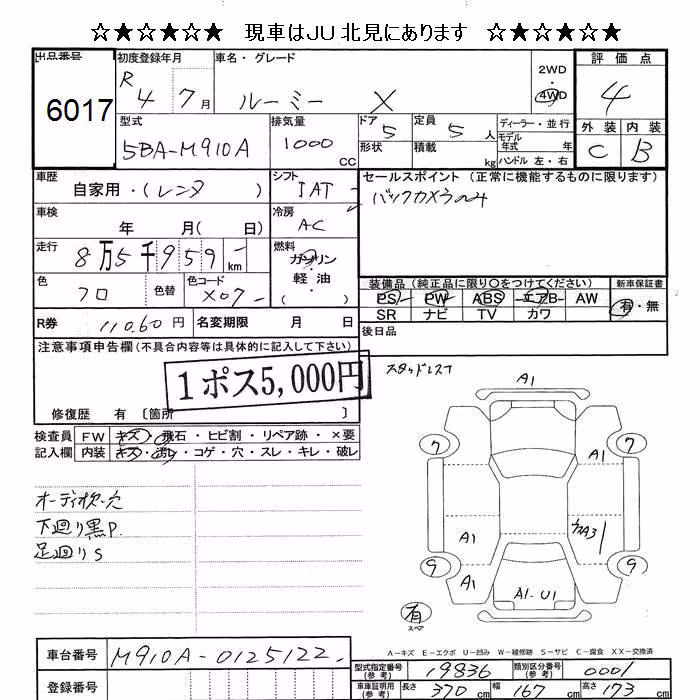 ☆★☆★☆★ 現車はJU北見にあります ☆★☆★☆★
出品番号 6017
初度登録年月 R 4 7月
車名・グレード ルーミー X
2WD・4WD
評価点 4
外装 C 内装 B
型式 5BA-M910A
排気量 1000 CC
ドア 5
形状
定員 5 人
積載 kg
ディーラー・並行
モデル年式 年
ハンドル 左・右
車歴 自家用・(レンタ )
シフト IAT
セールスポイント (正常に機能するものに限ります)
バックカメラのみ
車検 年 月( 日)
冷房 AC
走行 8万5千959 km
燃料 ガソリン・軽油 ( )
色 クロ 色替
色コード X07
装備品 (純正品に限り○をつけてください)
PS PW ABS エアB AW
SR ナビ TV カワ
新車保証書 有・無
R券 11060円
名変期限 月 日
後日品
注意事項申告欄(不具合内容等は具体的に記入して下さい)
1ポス5,000円
修復歴 有 [箇所 ]
スタッドレス
検査員記入欄
FW キズ・飛石・ヒビ割・リペア跡・×要
内装 キズ・汚レ・コゲ・穴・スレ・キレ・破レ
オーディオ欠.穴
下廻り黒P.
足廻りS
A1
7 7
A1
A1
A3
9 9
A1
A1・U1
有
スペア
A-キズ E-エクボ U-凹み W-補修跡 S-サビ C-腐食 XX-交換済
車台番号 M910A-0125122
登録番号
型式指定番号(参考) 19836
類別区分番号(参考) 0001
車庫証明用(参考) 長さ 370 cm 幅 167 cm 高さ 173 cm